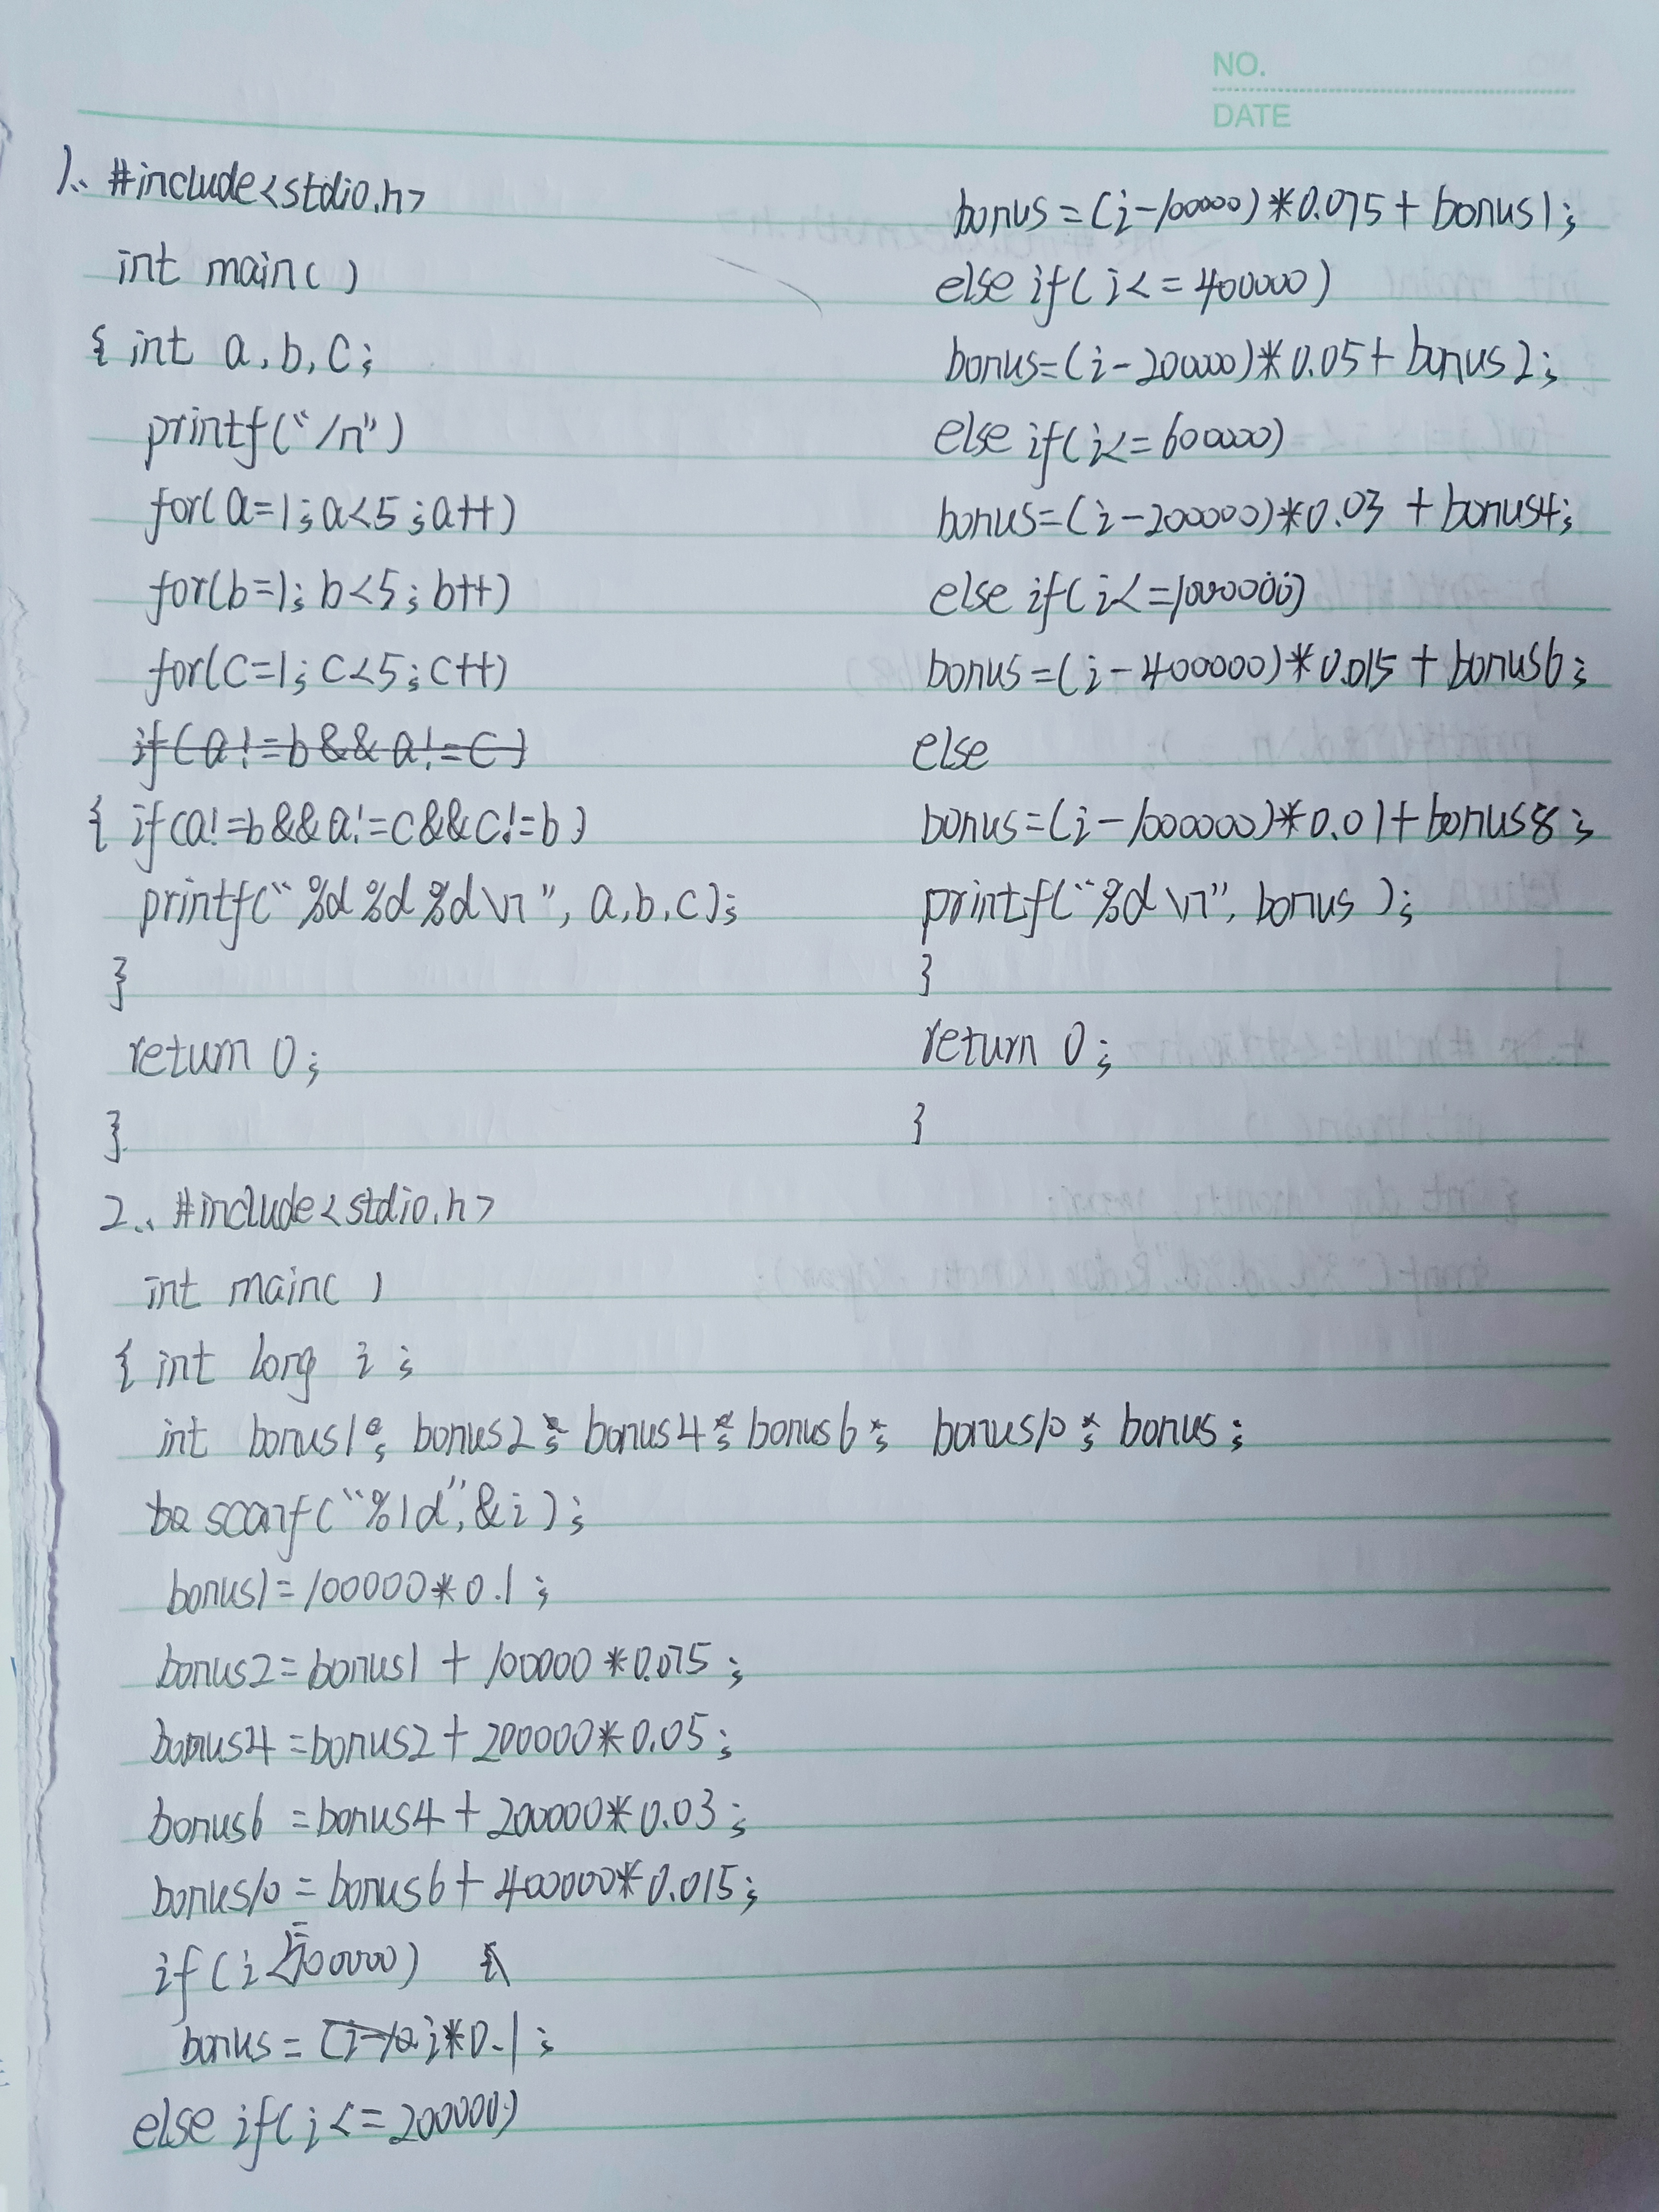 NO.
DATE
1. #include<stdio.h>
int main( )
{ int a, b, c;
printf("/n")
for(a=1;a<5;a++)
for(b=1;b<5;b++)
for(c=1;c<5;c++)
if(a!=b&&a!=c)
{ if(a!=b&&a!=c&&c!=b)
printf("%d %d %d\n", a,b,c);
}
return 0;
}
2. #include<stdio.h>
int main( )
{ int long i;
int bonus1; bonus2; bonus4; bonus6; bonus10; bonus;
scanf("%ld",&i);
bonus1=100000*0.1;
bonus2=bonus1+100000*0.075;
bonus4=bonus2+200000*0.05;
bonus6=bonus4+200000*0.03;
bonus10=bonus6+400000*0.015;
if(i<=100000)
bonus=i*0.1;
else if(i<=200000)
bonus=(i-100000)*0.075+bonus1;
else if(i<=400000)
bonus=(i-200000)*0.05+bonus2;
else if(i<=600000)
bonus=(i-200000)*0.03+bonus4;
else if(i<=1000000)
bonus=(i-400000)*0.015+bonus6;
else
bonus=(i-1000000)*0.01+bonus8;
printf("%d\n", bonus);
}
return 0;
}